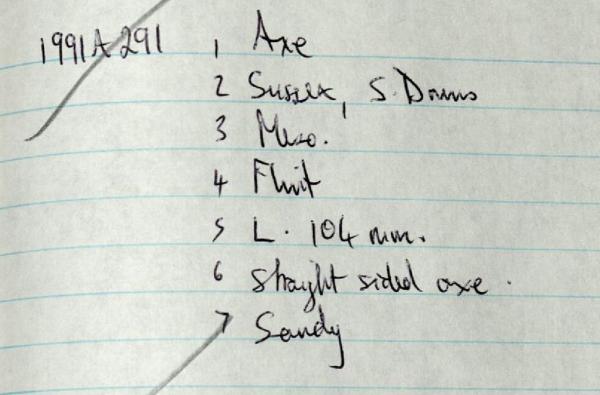 1991A291 1 Axe
2 Sussex, S. Downs
3 Meso.
4 Flint
5 L. 104 mm.
6 Straight sided axe.
7 Sandy